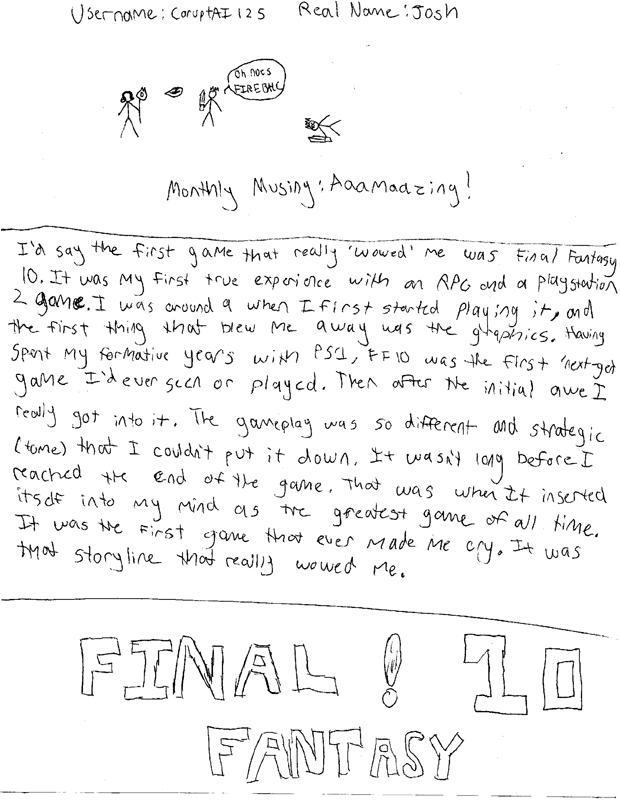 Username: CoruptAI125 Real Name: Josh
Oh noes
FIREBALL
Monthly Musing: Aaamaazing!
I'd say the first game that really 'wowed' me was Final Fantasy
10. It was my first true experience with an RPG and a playstation
2 game. I was around 9 when I first started playing it, and
the first thing that blew me away was the graphics. Having
spent my formative years with PS1, FF10 was the first 'next-gen'
game I'd ever seen or played. Then after the initial awe I
really got into it. The gameplay was so different and strategic
(to me) that I couldn't put it down. It wasn't long before I
reached the end of the game. That was when It inserted
itself into my mind as the greatest game of all time.
It was the first game that ever made me cry. It was
that storyline that really wowed me.
FINAL ! 10
FANTASY